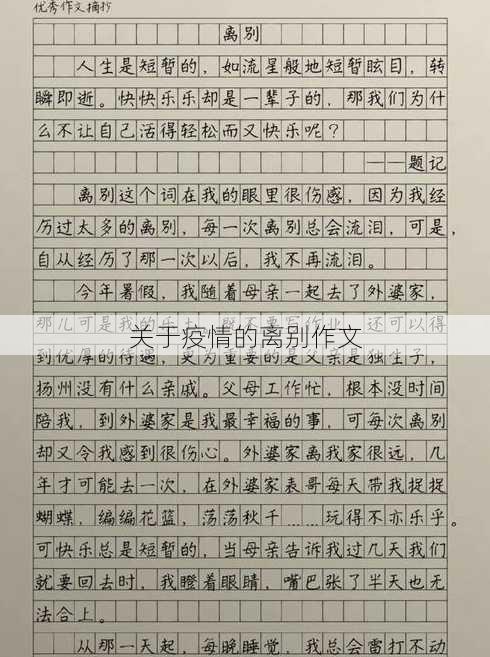 优秀作文摘抄
离别
人生是短暂的，如流星般地短暂眩目，转
瞬即逝。快快乐乐却是一辈子的，那我们为什
么不让自己活得轻松而又快乐呢？
——题记
离别这个词在我的眼里很伤感，因为我经
历过太多的离别，每一次离别总会流泪，可是，
自从经历了那一次以后，我不再流泪。
今年暑假，我随着母亲一起去了外婆家，
那儿可是我的乐土，既不要写作业，还可以得
关于疫情的离别作文
到优厚的待遇，更为重要的是父亲是独生子，
扬州没有什么亲戚。父母工作忙，根本没时间
陪我，到外婆家是我最幸福的事，可每次离别
却又令我感到很伤心。外婆家离我家很远，几
年才可能去一次，在外婆家表哥每天带我捉捉
蝴蝶，编编花篮，荡荡秋千……玩得不亦乐乎。
可快乐总是短暂的，当母亲告诉我过几天我们
就要回去时，我瞪着眼睛，嘴巴张了半天也无
法合上。
从那一天起，每晚睡觉，我总会雷打不动